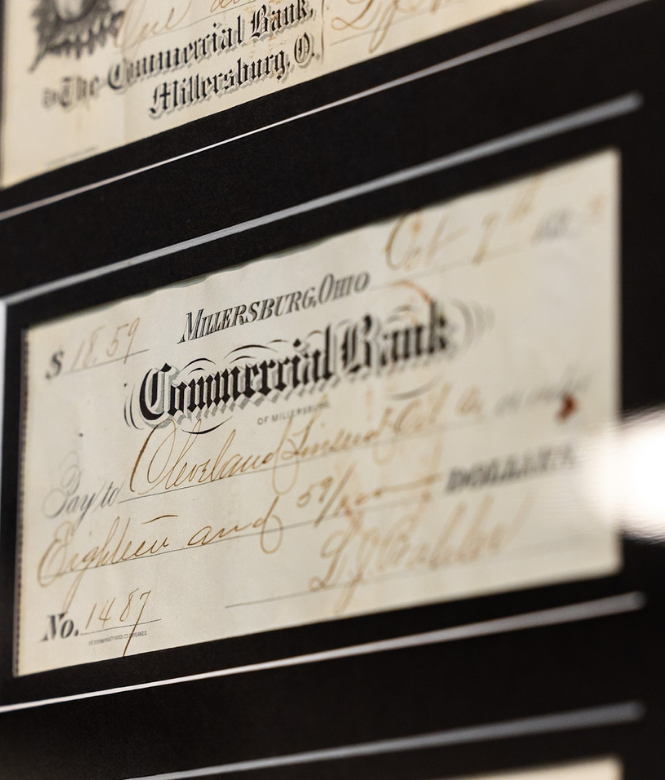 The Commercial Bank,
Millersburg, O.
Oct 7th
MILLERSBURG, OHIO
$ 18.59
Commercial Bank
OF MILLERSBURG
Pay to Cleveland Linseed Oil Co. or order
Eighteen and 59/ DOLLARS
No. 1487